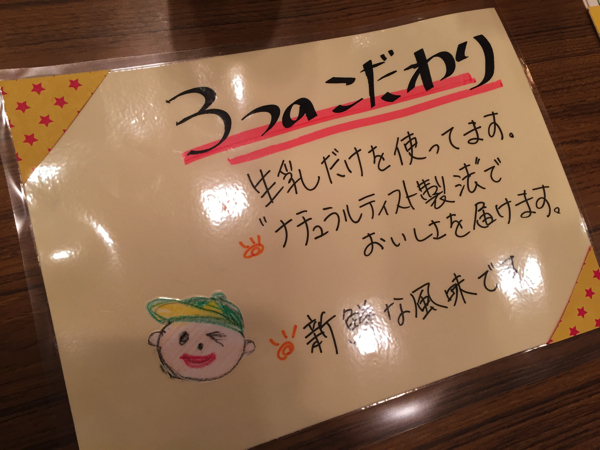 3つのこだわり
生乳だけを使ってます。
ナチュラルティスト製法で
おいしさを届けます。
新鮮な風味です